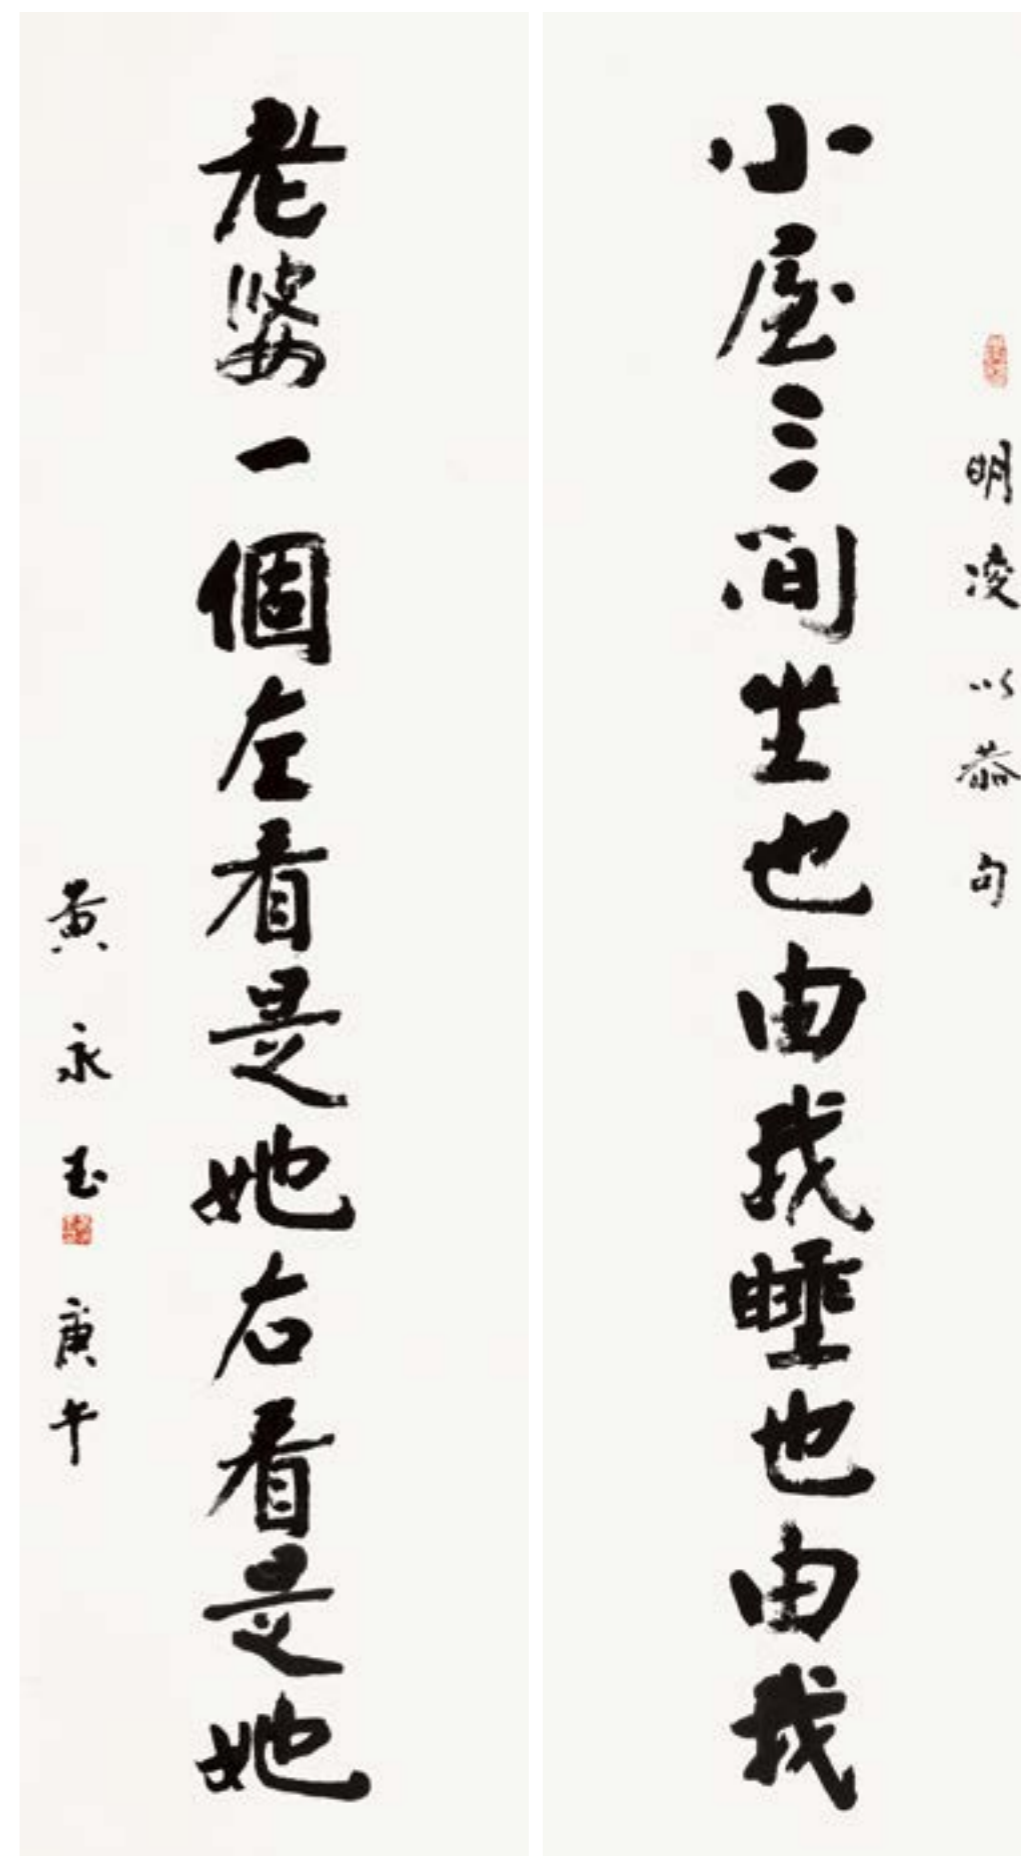 明凌以恭句
小屋三间坐也由我睡也由我
老婆一個左看是她右看是她
黄永玉
庚午